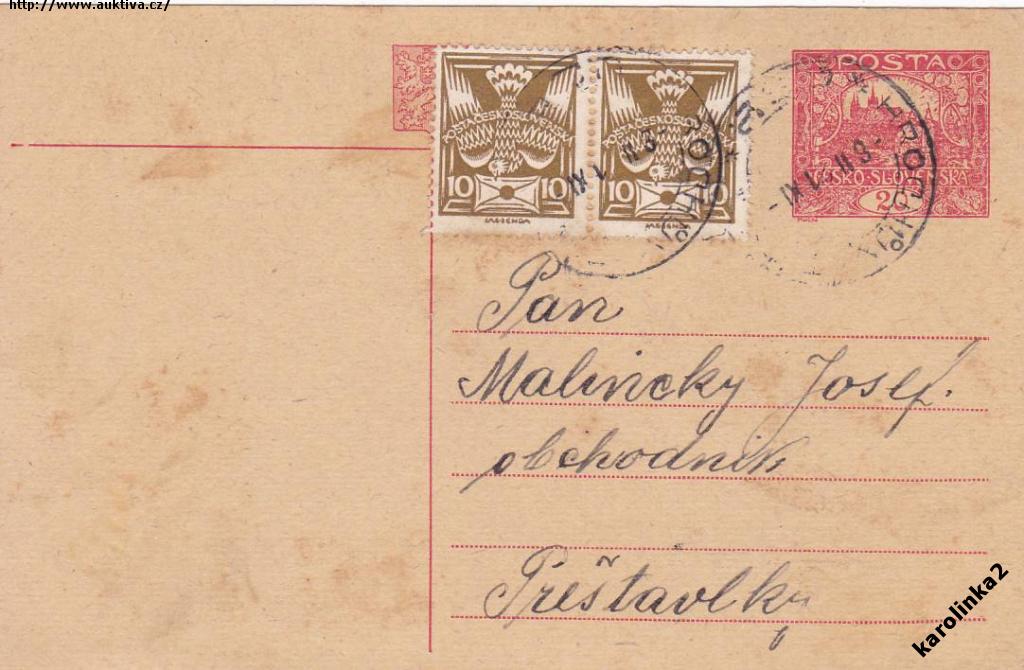 http://www.auktiva.cz/
POŠTA ČESKOSLOVENSKÁ
10 10
BENDA
POŠTA ČESKOSLOVENSKÁ
10 10
BENDA
POŠTA
ČESKO-SLOVENSKÁ
Pan
Malincky Josef.
obchodník
Přeštavlky
karolinka2